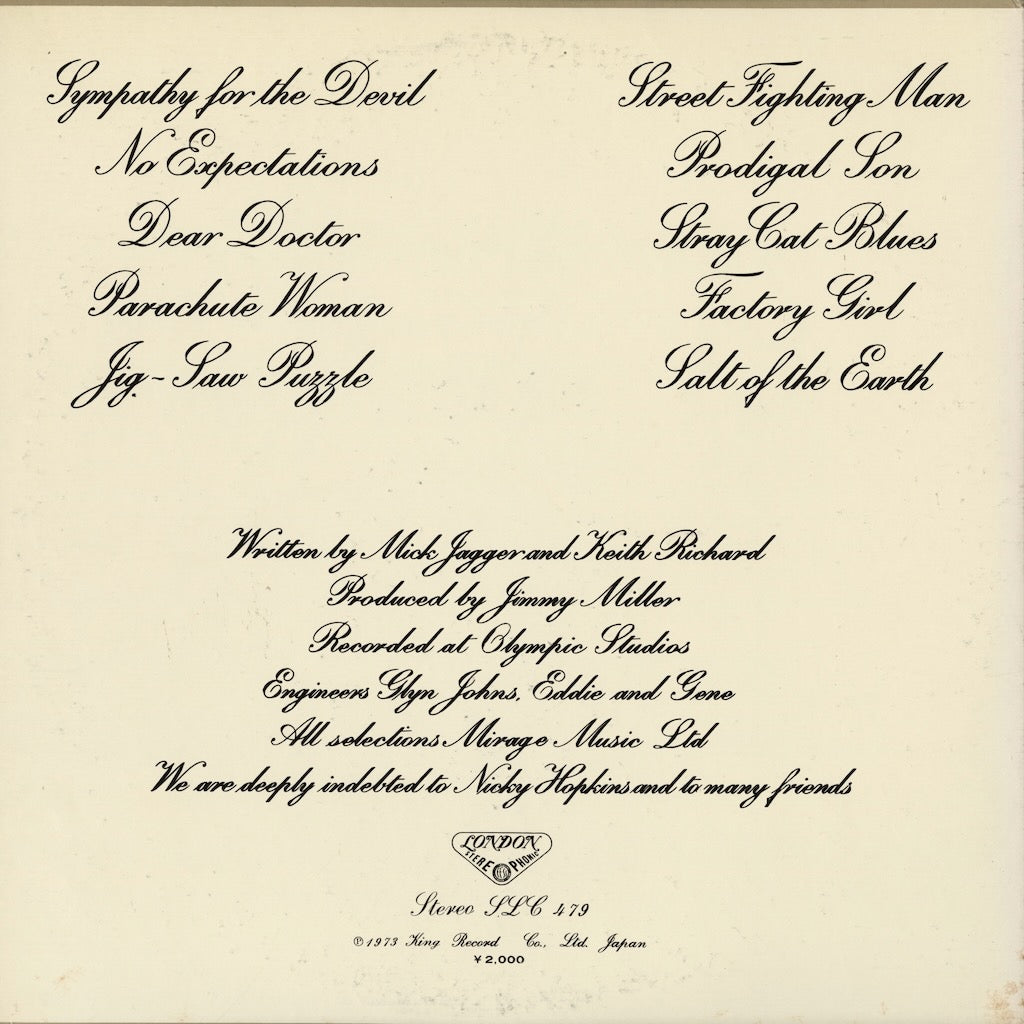 Sympathy for the Devil
No Expectations
Dear Doctor
Parachute Woman
Jig-Saw Puzzle
Street Fighting Man
Prodigal Son
Stray Cat Blues
Factory Girl
Salt of the Earth
Written by Mick Jagger and Keith Richard
Produced by Jimmy Miller
Recorded at Olympic Studios
Engineers Glyn Johns, Eddie and Gene
All selections Mirage Music Ltd
We are deeply indebted to Nicky Hopkins and to many friends
LONDON
STEREOPHONIC
Stereo SLC 479
℗1973 King Record Co., Ltd. Japan
¥2,000